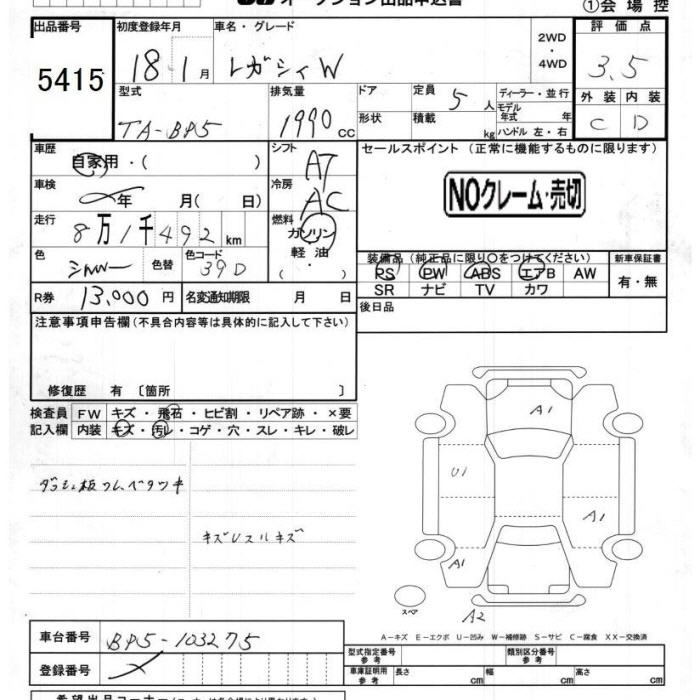 オークション出品申込書
①会場控
出品番号 初度登録年月 車名・グレード 評価点
5415 18・1月 レガシィW 2WD・4WD 3.5
型式 排気量 ドア 定員 5人 ディーラー・並行 外装 内装
TA-BP5 1990cc 形状 積載 kg モデル年式 年 ハンドル 左・右 C D
車歴 自家用・( ) シフト AT セールスポイント(正常に機能するものに限ります)
車検 年 月( 日) 冷房 AC NOクレーム・売切
走行 8万1千492km 燃料 ガソリン
軽油
・( )
色 シルバー 色替 色コード 39D 装備品(純正品に限り○をつけてください) 新車保証書
PS PW ABS エアB AW 有・無
SR ナビ TV カワ
R券 13,000円 名変通知期限 月 日 後日品
注意事項申告欄(不具合内容等は具体的に記入して下さい)
修復歴 有〔箇所 〕
検査員 FW キズ・飛石・ヒビ割・リペア跡・×要
記入欄 内装 キズ・汚レ・コゲ・穴・スレ・キレ・破レ
A1
ダッシュ板
U1
A1
キズ
A1
スペア
A2
A－キズ E－エクボ U－凹み W－補修跡 S－サビ C－腐食 XX－交換済
車台番号 BP5-103275
登録番号
型式指定番号 参考 類別区分番号 参考
車庫証明用 参考 長さ cm 幅 cm 高さ cm